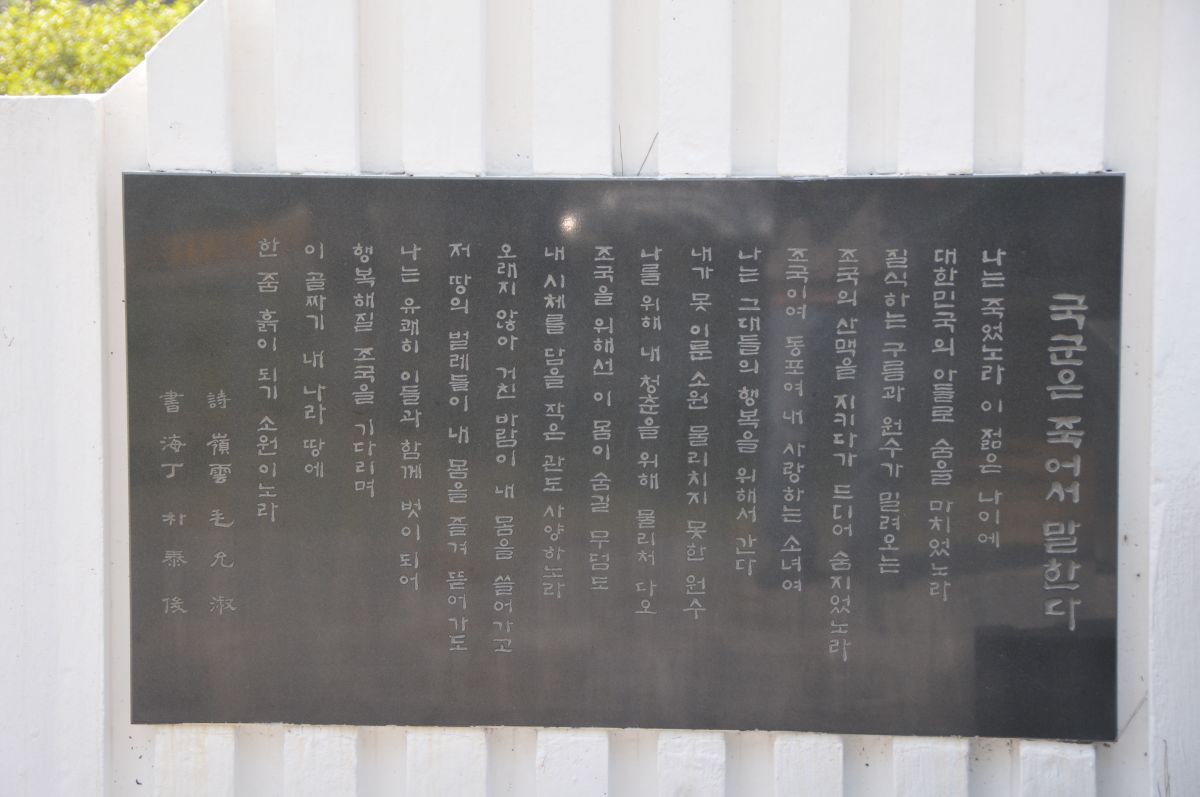 국군은 죽어서 말한다
나는 죽었노라 이 젊은 나이에
대한민국의 아들로 숨을 마치었노라
질식하는 구름과 원수가 밀려오는
조국의 산맥을 지키다가 드디어 숨지었노라
조국이여 동포여 내 사랑하는 소녀여
나는 그대들의 행복을 위해서 간다
내가 못 이룬 소원 물리치지 못한 원수
나를 위해 내 청춘을 위해 물리쳐 다오
조국을 위해선 이 몸이 숨길 무덤도
내 시체를 담을 작은 관도 사양하노라
오래지 않아 거친 바람이 내 몸을 쓸어가고
저 땅의 벌레들이 내 몸을 즐겨 뜯어가도
나는 유쾌히 이들과 함께 벗이 되어
행복해질 조국을 기다리며
이 골짜기 내 나라 땅에
한 줌 흙이 되기 소원이노라
詩 嶺雲 毛允淑
書 海丁 朴泰俊